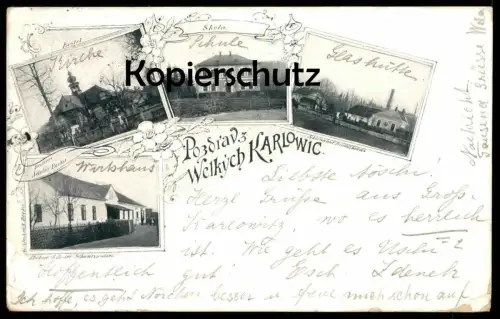 Kostel
Kirche
Škola.
Schule
Glashütte
Kopierschutz
Wirtshaus
Pozdrav z
Welkých KARLOWIC.
Liebste
Herzl. Grüße aus Groß-
Karlowitz, wo es herrlich
ist. Wie geht es Uschi?
Hoffentlich gut!
Zdenek
Ich hoffe, es geht besser u. freue mich schon auf
Nachricht
Tausend Grüsse